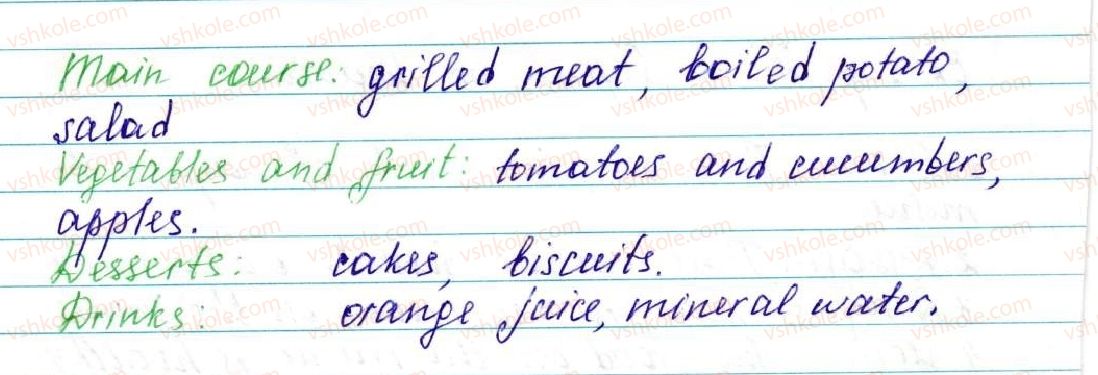 Main course: grilled meat, boiled potato,
salad
Vegetables and fruit: tomatoes and cucumbers,
apples.
Desserts: cakes, biscuits.
Drinks: orange juice, mineral water.